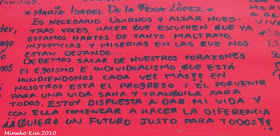 *María Isabel De la Rosa López.*
Es necesario unirnos y alzar nues-
tras voces, hacer que escuchen que ya
estamos hartos de tanto maltrato,
injusticias y miserias en las que nos
están dejando.
Debemos sacar de nuestros corazones
el egoísmo e individualismo que está
hundiéndonos cada vez más!!! En
nosotros está el progreso y el porvenir
para una vida sana y tranquila para
todos. Estoy dispuesta a dar mi vida y
con ella comenzar a hacer la diferencia
¡¡Quiero un futuro justo para todos!!
Mineko Kia 2010